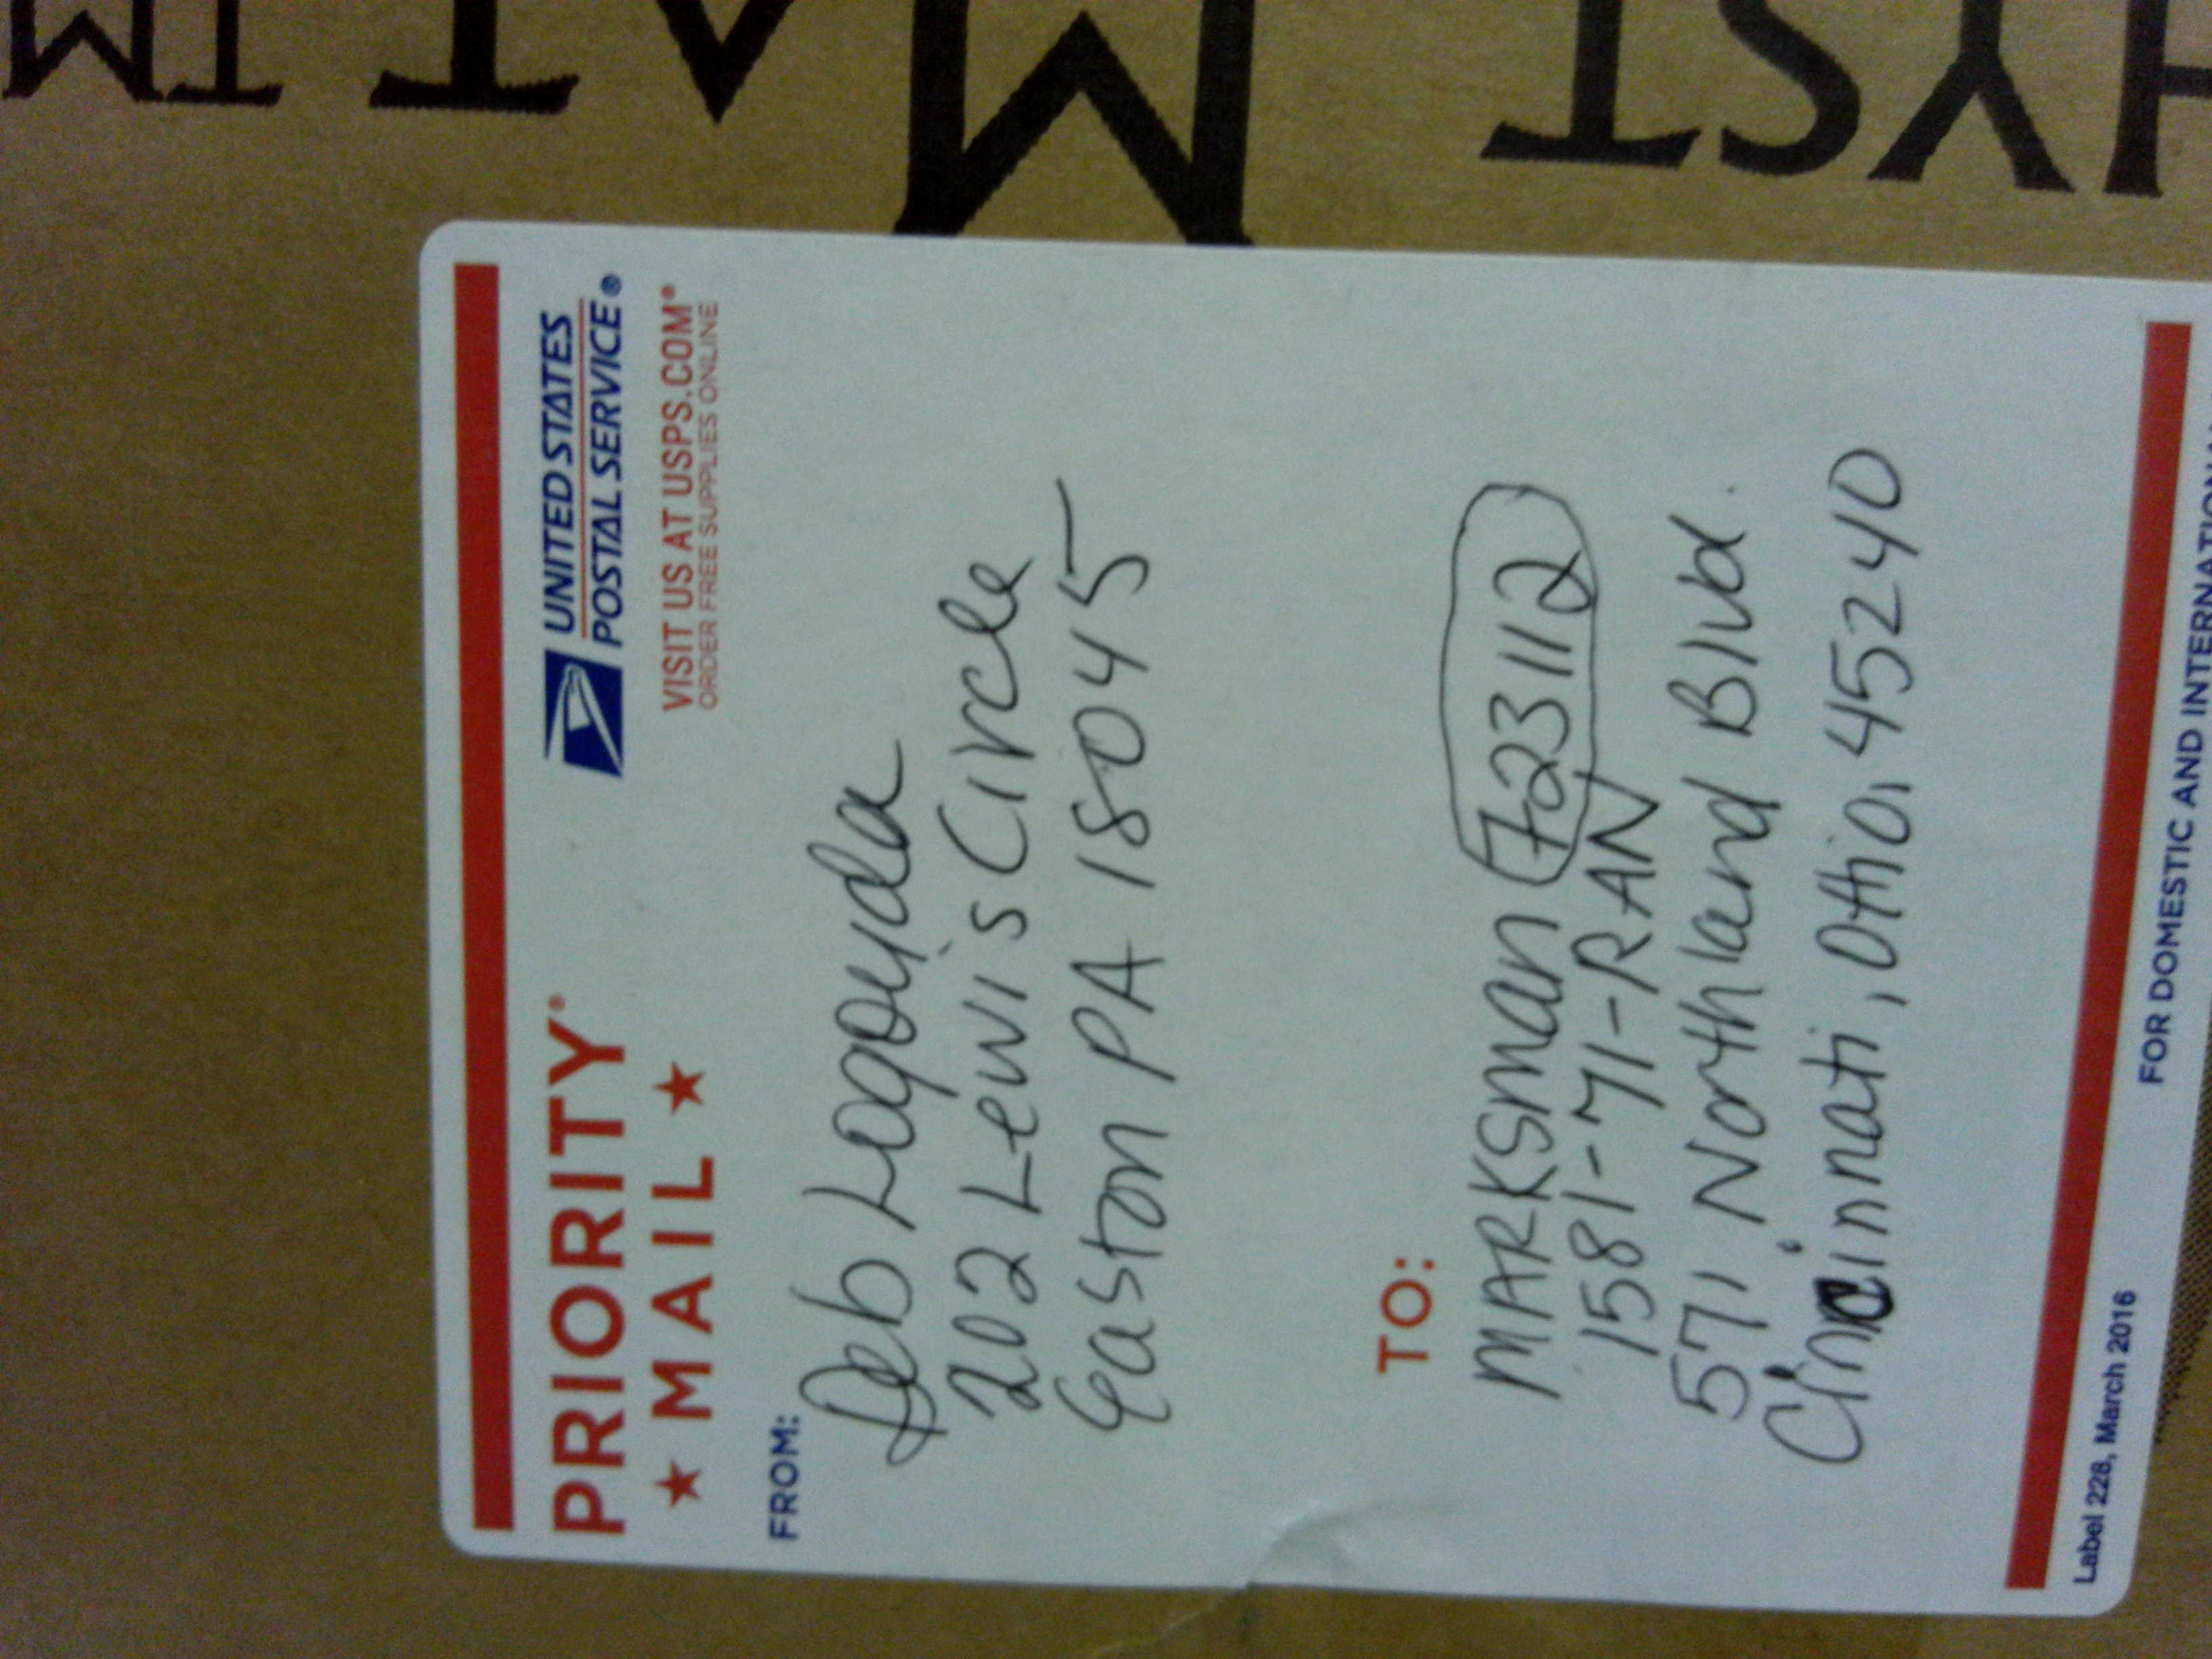 PRIORITY®
★ MAIL ★
UNITED STATES
POSTAL SERVICE®
VISIT US AT USPS.COM®
ORDER FREE SUPPLIES ONLINE
FROM:
Deb Logoyda
202 Lewis Circle
Easton PA 18045
TO:
MARKSman 723112
1581-71-RAN
571 Northland Blvd.
Cincinnati, Ohio, 45240
Label 228, March 2016
FOR DOMESTIC AND INTERNATIONAL